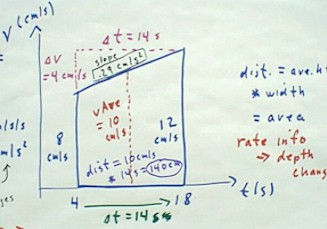 V (cm/s)
Δt = 14 s
ΔV
= 4 cm/s
slope
.29 cm/s²
vAve
= 10
cm/s
8
cm/s
12
cm/s
dist = 10 cm/s
* 14 s = 140 cm
4
18
t(s)
Δt = 14 s
dist. = ave. h
* width
= area
rate info
→ depth
chang
m/s/s
m/s²
ges